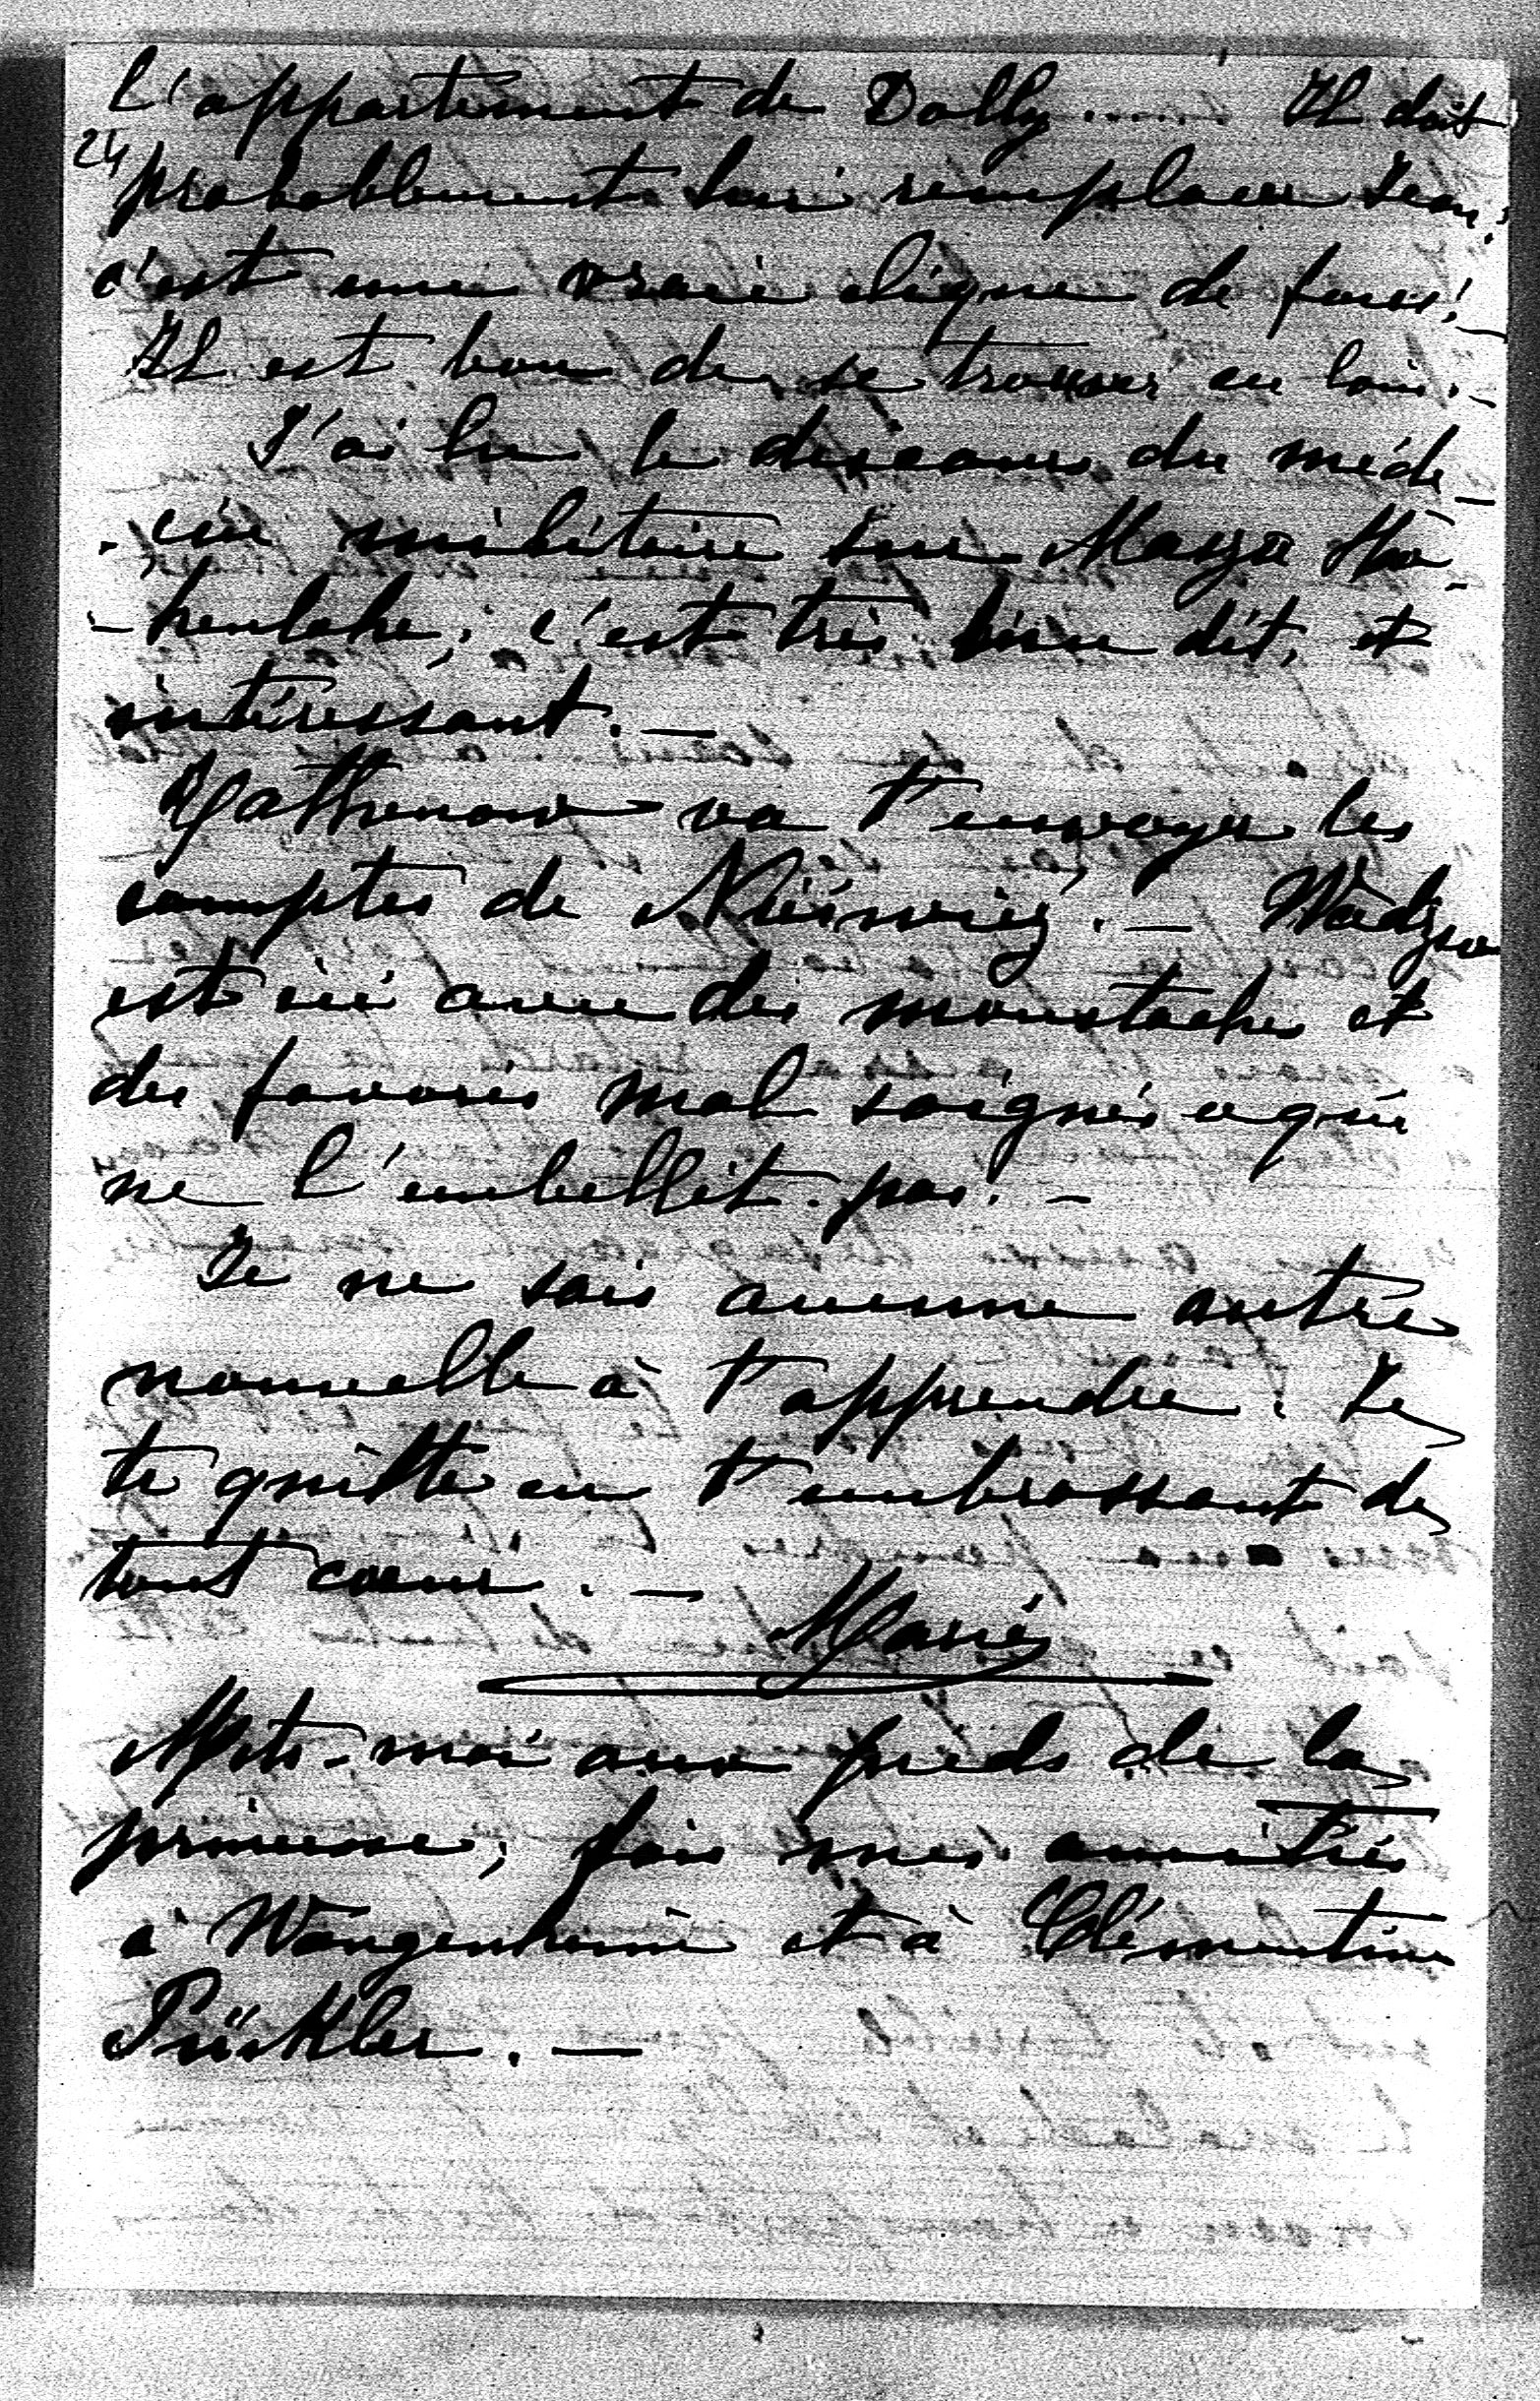 l'appartement de Dolly ...... Il doit
24
probablement lui remplacer Jean;
c'est une vraie clique de fous! _
Il est bon de se trouver au loin. _
J'ai lu le discours du méde_
_cin militaire sur Marya Ho_
_henlohe; c'est très bien dit, et
intéressant. _
Rathenow va t'envoyer les
comptes de Nieswiez. _ Wadzio
est ici avec des moustaches et
des favoris mal soignés ce qui
ne l'embellit pas. _
Je ne sais aucune autre
nouvelle à t'apprendre. Je
te quitte en t'embrassant de
tout coeur. _
Marie
Mets-moi aux pieds de la
princesse; fais mes amitiés
à Wangenheim et à Clémentine
Pückler. _